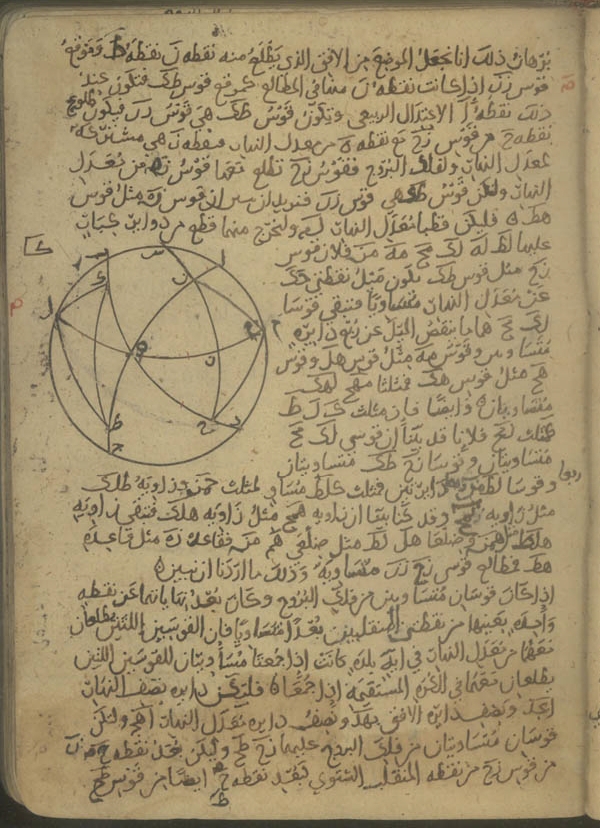 برهان ذلك انا نجعل الموضع من الافق الذي يطلع منه نقطه ن نقطه ط وموقع
قوس زن اذا كانت نقطه ن من مبتدا في المطالع كموقع قوس طك فتكون عند
ذلك نقطه ا الاعتدال الربيعي وتكون قوس طك هي قوس زن فيكون طلوع
نقطه ح من قوس زح مع نقطه ه من معدل النهار فنقطه ن هي مشتركه
لمعدل النهار ولفلك البروج فقوس زح تطلع معها قوس زه من معدل
النهار ولكن قوس طك هي قوس زن فنريد ان نبين ان قوس زه مثل قوس
هط فليكن قطبا معدل النهار ل م ولنخرج منهما قطع من دواير عظام
عليها لط له لك مح مه مز فلان قوس
زح مثل قوس طك يكون ميل نقطتي ح ك
عن معدل النهار متساويا فتبقى قوسا
لك مح هاما ينقص الميل عن ربع دايره
متساويين وقوس مه مثل قوس هل وقوس
هح مثل قوس هك فمثلثا مهح لهك
متساويان وايضا فان مثلث ك ل ط
كمثلث نمح فلانا قد بينا ان قوسي لك مح
متساويتان وقوسا زح طك متساويتان
وقوسا لط من ربعا دايرتين فمثلث كلط مساو لمثلث حمز وزاويه طلك
مثل زاويه زمح وقد كنا بينا ان زاويه همح مثل زاويه هلك فتبقى زاويه
هلط مثل همز وضلعا هل لط مثل ضلعي هم مز فقاعده زه مثل قاعده
هط فمطالع قوسي زح زن متساويه وذلك ما اردنا ان نبين
اذا كان قوسان متساويتين من فلك البروج وكان بعد نهاياتها عن نقطه
واحده بعينها من نقطتي المنقلبين بعدا متساويا فان القوسين اللتين تطلعان
معهما من معدل النهار في ايه بلده كانت اذا جمعتا مساويتان للقوسين اللتين
يطلعان معهما في الكره المستقيمه اذا جمعتا فلتكن دايره نصف النهار
ابجد ونصف دايره الافق بهد ونصف دايره معدل النهار اهج ولتكن
قوسان متساويتان من فلك البروج عليهما زح طح وليكن بعد نقطه ح
من قوس زح من نقطه المنقلب الشتوي كبعد نقطه ح ايضا من قوس طح